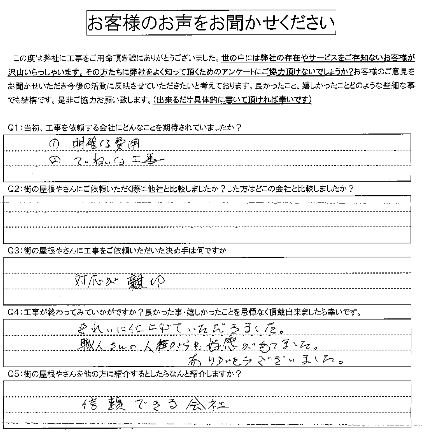 お客様のお声をお聞かせください
この度は弊社に工事をご用命頂き誠にありがとうございました。世の中には弊社の存在やサービスをご存知ないお客様が
沢山いらっしゃいます。その方たちに弊社をよく知って頂くためのアンケートにご協力頂けないでしょうか?お客様のご意見を
お聞かせいただき今後の活動に反映させていただきたいと考えております。良かったこと、嬉しかったことどのような些細な事
でも結構です。是非ご協力お願い致します。(出来るだけ具体的に書いて頂ければ幸いです)
Q1:当初、工事を依頼する会社にどんなことを期待されていましたか?
① 明確な費用
② ていねいな工事
Q2:街の屋根やさんにご依頼いただく際に他社と比較しましたか?した方はどこの会社と比較しましたか?
Q3:街の屋根やさんに工事をご依頼いただいた決め手は何ですか
対応が
Q4:工事が終わってみていかがですか?良かった事・嬉しかったことを忌憚なく頂戴出来ましたら幸いです。
きれいに仕上げていただきました。
職人さんの人柄にも好感がもてました。
ありがとうございました。
Q5:街の屋根やさんを他の方に紹介するとしたらなんと紹介しますか?
信頼できる会社